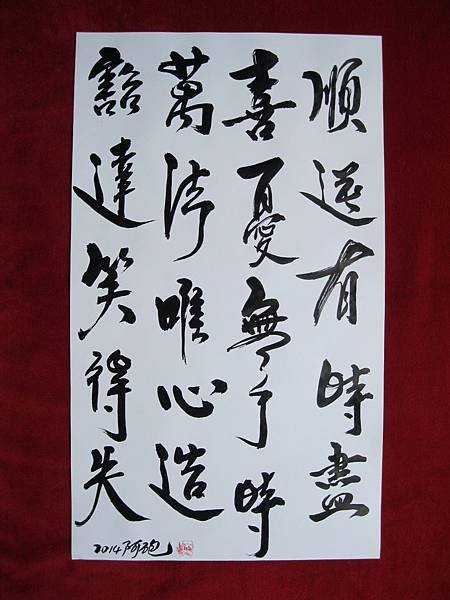 順逆有時盡
喜憂無了時
萬法唯心造
豁達笑得失
2014阿